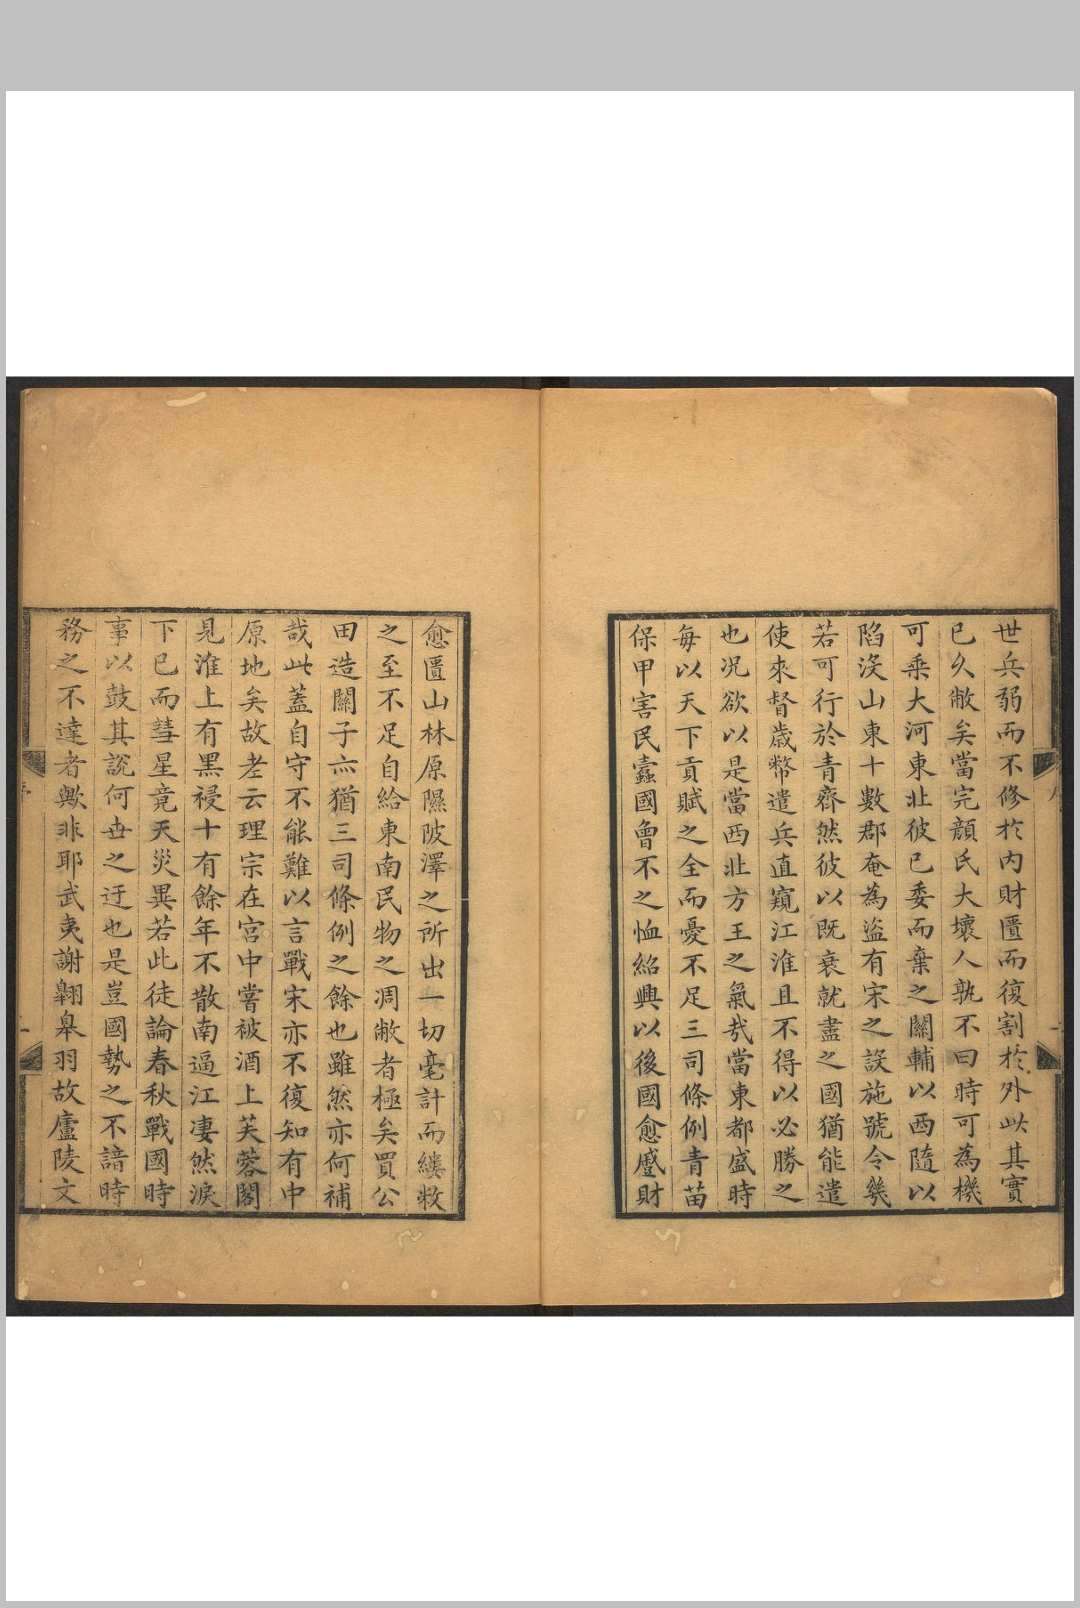 世兵弱而不修於内財匱而復割於外此其實
已久敝矣當完顔氏大壞人孰不曰時可為機
可乘大河東北彼已委而棄之關輔以西隨以
陷没山東十數郡奄為盗有宋之誤施號令幾
若可行於青齊然彼以既衰就盡之國猶能遣
使來督歳幣遣兵直窺江淮且不得以必勝之
也况欲以是當西北方王之氣㢤當東都盛時
每以天下貢賦之全而憂不足三司條例青苗
保甲害民蠹國曾不之恤紹興以後國愈蹙財
愈匱山林原隰陂澤之所出一切毫計而縷數
之至不足自給東南民物之凋敝者極矣買公
田造關子亦猶三司條例之餘也雖然亦何補
哉此蓋自守不能難以言戰宋亦不復知有中
原地矣故老云理宗在宫中嘗被酒上芙蓉閣
見淮上有黑祲十有餘年不散南逼江凄然淚
下已而彗星竟天災異若此徒論春秋戰國時
事以鼓其說何世之迂也是豈國勢之不諳時
務之不達者歟非耶武夷謝翺臯羽故廬陵文